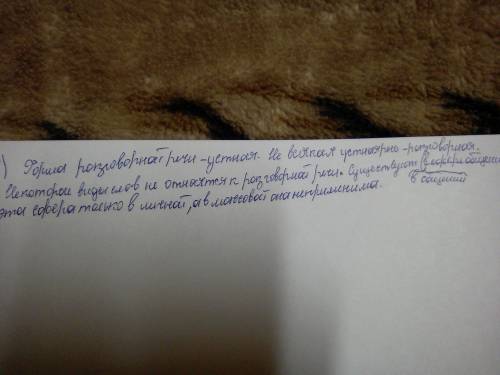 ) Форма разговорной речи - устная. Не всякая устная - разговорная.
Некоторые виды слов не относятся к разговорной речи. Существует в сфере общения
в общений
эта сфера только в личной, а в массовой она неприменима.